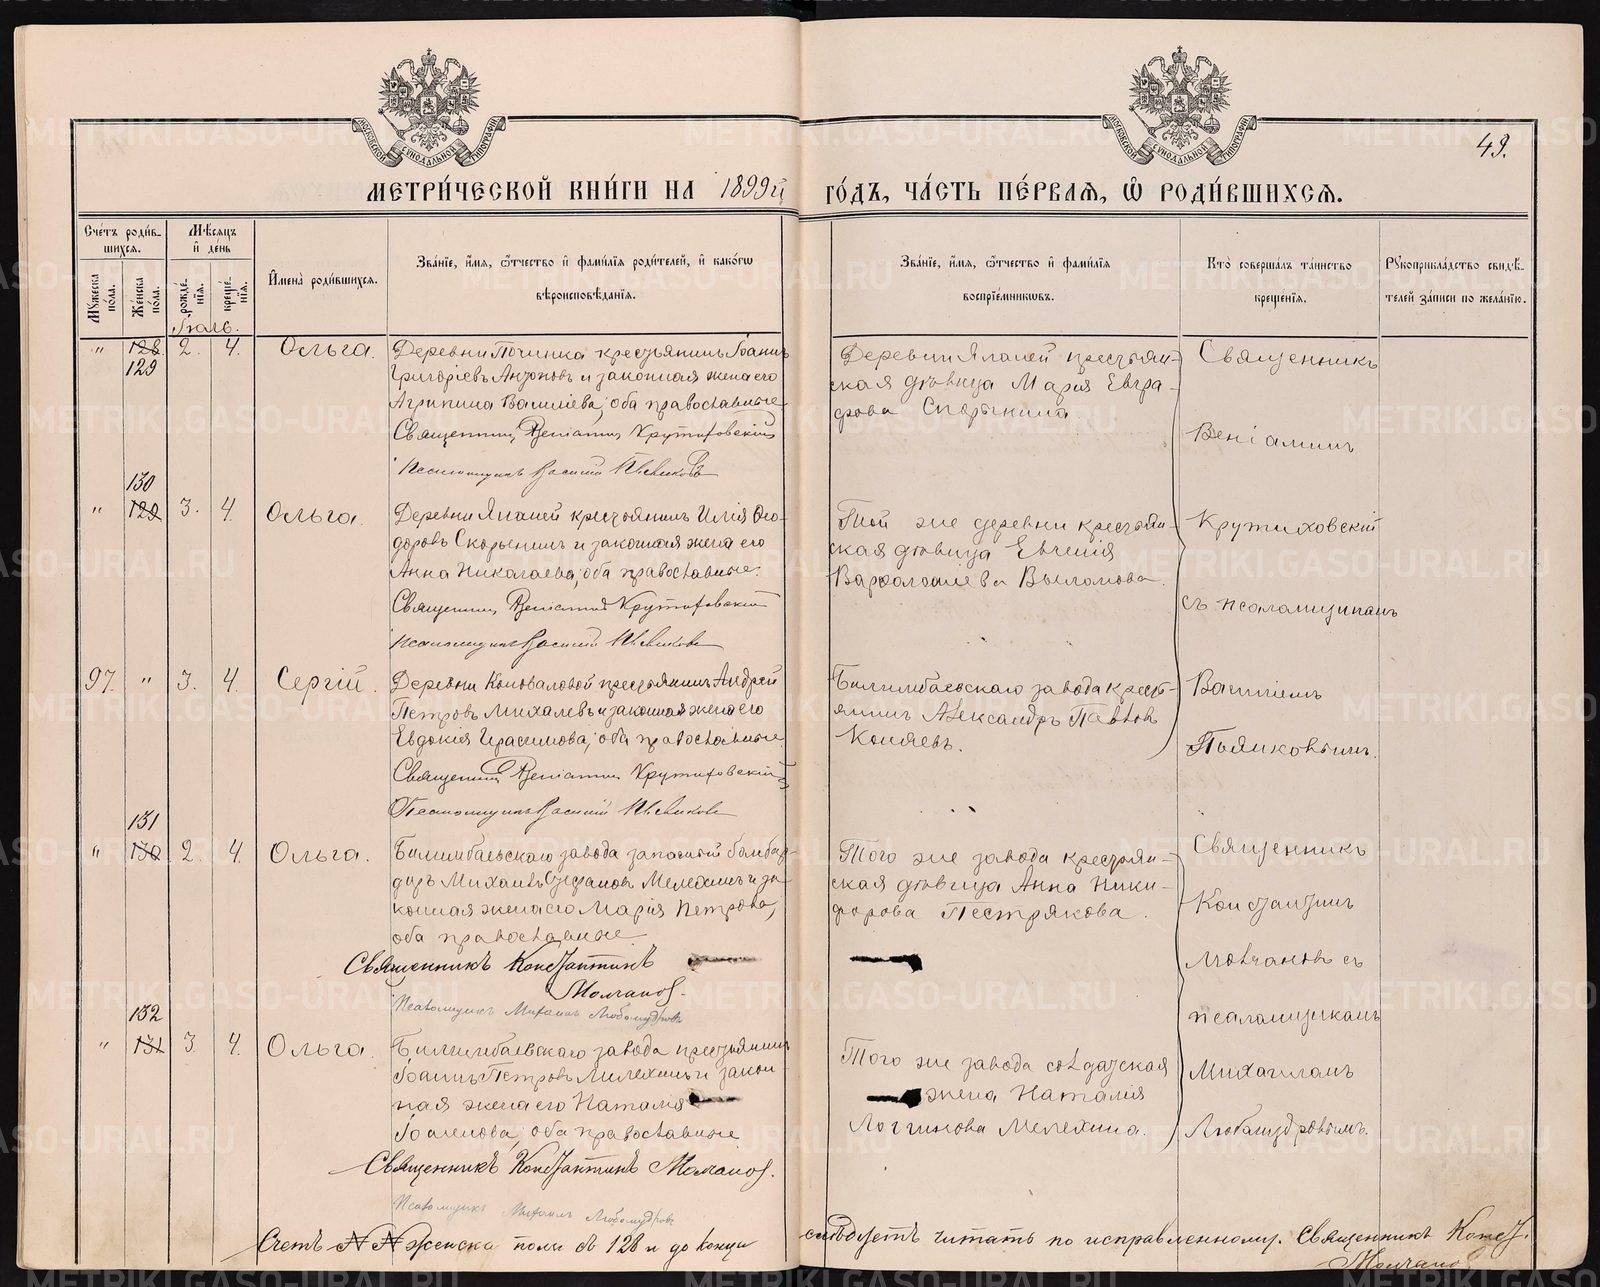 МОСКОВСКОЙ СѴНОДАЛЬНОЙ ТИПОГРАФІИ
МОСКОВСКОЙ СѴНОДАЛЬНОЙ ТИПОГРАФІИ
49.
МЕТРИ́ЧЕСКОЙ КНИ́ГИ НА 1899й ГО́ДЪ, ЧА́СТЬ ПЕ́РВАѦ, Ѡ РОДИ́ВШИХСѦ.
Сче́тъ роди́в-
шихсѧ.
Мꙋ́жеска по́ла.
Же́нска по́ла.
Мѣ́сѧцъ и де́нь
рожде́-
нїѧ.
креще́-
нїѧ.
Имена̀ роди́вшихсѧ.
Зва́нїе, и́мѧ, ѻ́тчество и фами́лїѧ роди́телей, и како́гѡ
вѣроисповѣ́данїѧ.
Зва́нїе, и́мѧ, ѻ́тчество и фами́лїѧ
воспрїе́мникѡвъ.
Кто̀ соверша́лъ та́инство
креще́нїѧ.
Рꙋкоприкла́дство свидѣ́-
телей за́писи по жела́нїю.
Іюль.
" 128 2. 4. Ольга.
129
Деревни Починка крестьянинъ Іоаннъ
Григоріевъ Антоновъ и законная жена его
Агрипина Василіева, оба православные
Священникъ Веніаминъ Крутиховскій
Псаломщикъ Василій
Деревни Яланей крестьян-
ская дѣвица Мария Евгра-
фова Скорынина.
Священникъ
Веніаминъ
130
" 129 3. 4. Ольга.
Деревни Яланей крестьянинъ Илія Ѳео-
доровъ Скорынинъ и законная жена его
Анна Николаева, оба православные.
Священникъ Веніаминъ Крутиховскій
Псаломщикъ Василій
Той же деревни крестьян-
ская дѣвица Евгенія
Варфоломіева
Крутиховскій
съ псаломщикомъ
97. " 3. 4. Сергій.
Деревни Коноваловой крестьянинъ Андрей
Петровъ Михалевъ и законная жена его
Евдокия Герасимова, оба православные.
Священникъ Веніаминъ Крутиховскій
Псаломщикъ Василій
Билимбаевскаго завода кресть-
янинъ Александръ Павловъ
Коняевъ.
Василіемъ
131
" 130 2. 4. Ольга.
Билимбаевскаго завода запасной бомбар-
диръ Михаилъ Стефановъ Мелехинъ и за-
конная жена его Марія Петрова,
оба православные.
Священникъ Константинъ
Молчановъ.
Псаломщикъ Михаилъ Любомудровъ
Того же завода крестьян-
ская дѣвица Анна Ники-
форова Пестрякова.
Священникъ
Константинъ
Молчановъ съ
псаломщикомъ
132
" 131 3. 4. Ольга.
Билимбаевскаго завода крестьянинъ
Іоаннъ Петровъ Мелехинъ и закон-
ная жена его Наталія
Іоаннова, оба православные
Священникъ Константинъ Молчановъ.
Псаломщикъ Михаилъ Любомудровъ
Того же завода солдатская
жена Наталія
Логгинова Мелехина.
Михаиломъ
Любомудровымъ.
Счетъ №№ женска пола съ 128 и до конца слѣдуетъ читать по исправленному. Священникъ Конст.
Молчановъ